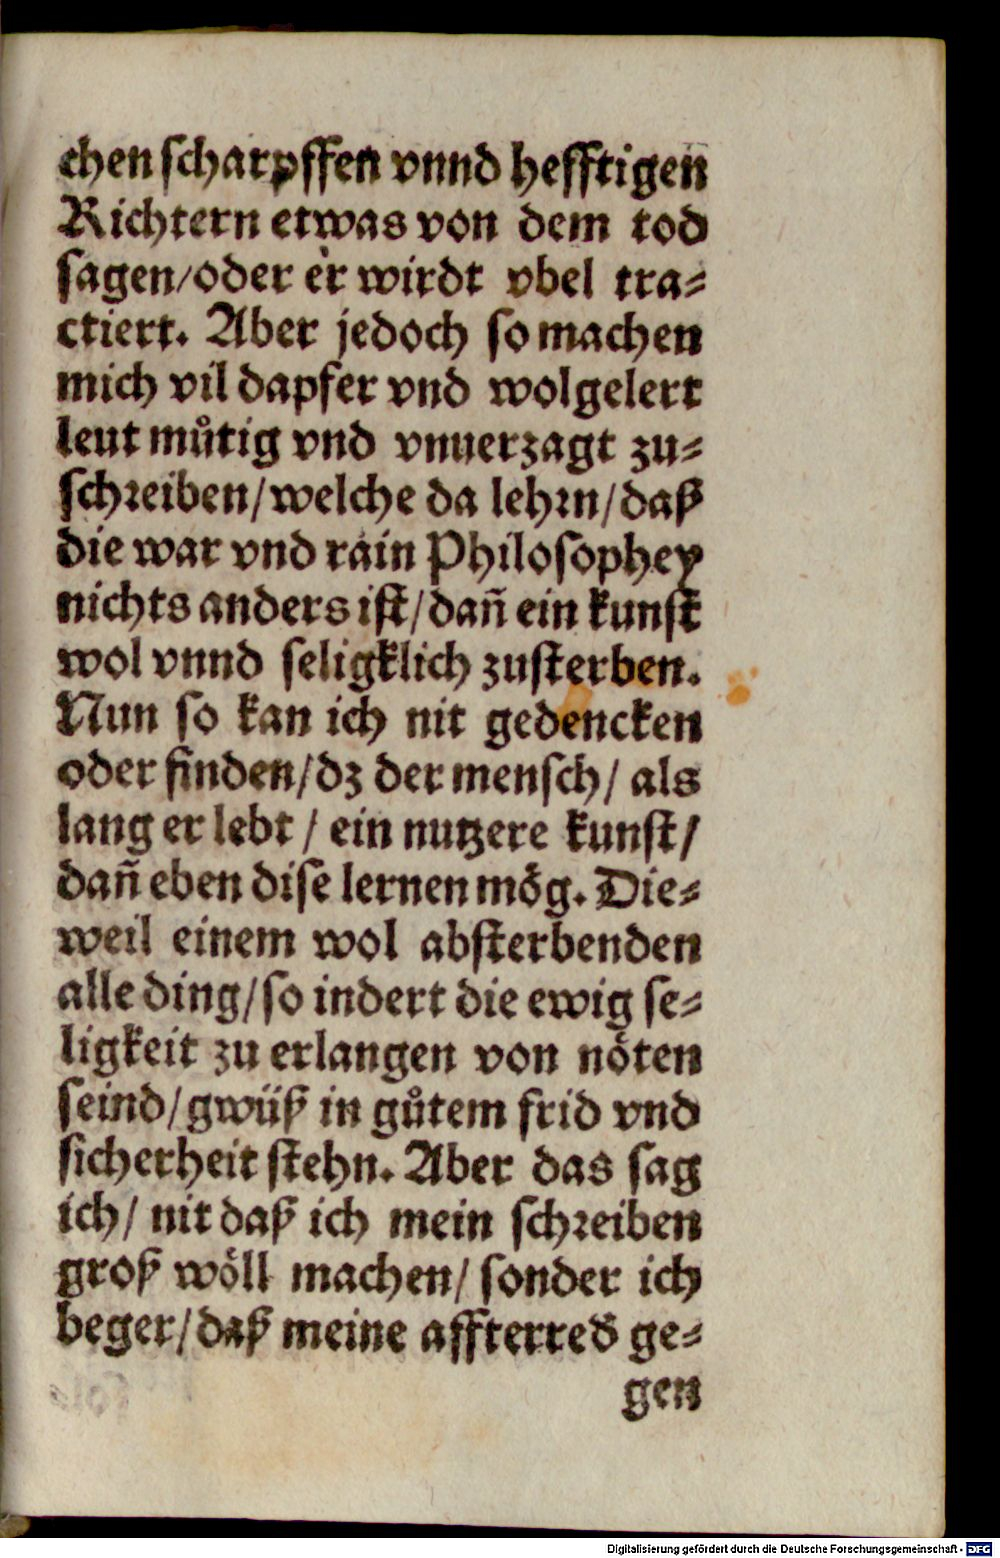 chen scharpffen vnnd hefftigen
Richtern etwas von dem tod
sagen/oder er wirdt vbel tra⸗
ctiert. Aber jedoch so machen
mich vil dapfer vnd wolgelert
leut můtig vnd vnuerzagt zu⸗
schreiben/welche da lehrn/daß
die war vnd rain Philosophey
nichts anders ist/dañ ein kunst
wol vnnd seligklich zusterben.
Nun so kan ich nit gedencken
oder finden/dz der mensch/ als
lang er lebt / ein nutzere kunst/
dañ eben dise lernen mög. Die⸗
weil einem wol absterbenden
alle ding/so indert die ewig se⸗
ligkeit zu erlangen von nöten
seind/gwüß in gůtem frid vnd
sicherheit stehn. Aber das sag
ich/ nit daß ich mein schreiben
groß wöll machen/ sonder ich
beger/daß meine affterred ge⸗
gen
Digitalisierung gefördert durch die Deutsche Forschungsgemeinschaft - DFG